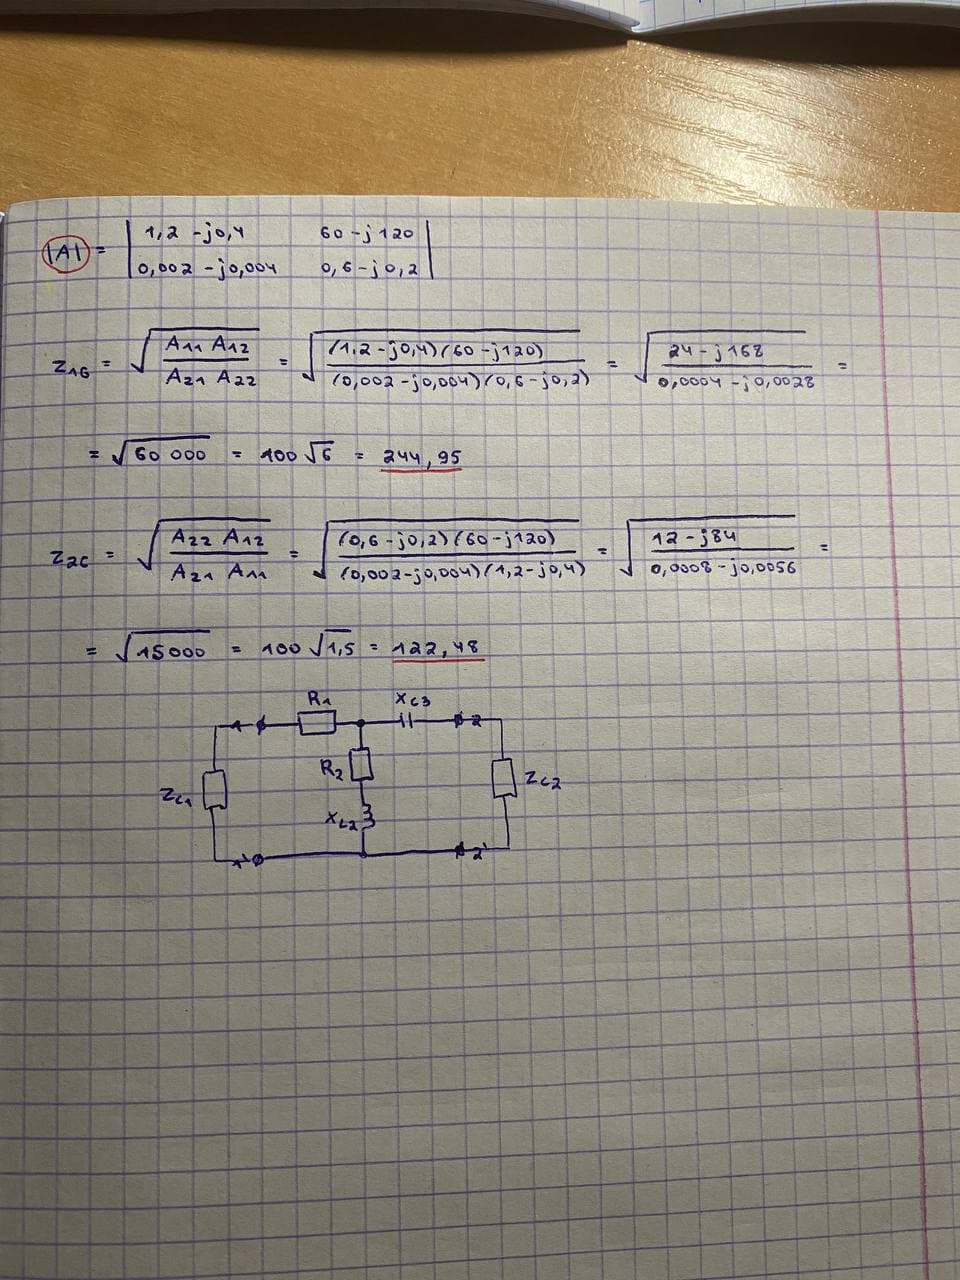 |A| = | 1,2 - j0,4 60 - j120 |
| 0,002 - j0,004 0,6 - j0,2 |
Z1G = √(A11 A12 / A21 A22) = √((1,2 - j0,4)(60 - j120) / (0,002 - j0,004)(0,6 - j0,2)) = √(24 - j168 / 0,0004 - j0,0028) =
= √60 000 = 100 √6 = 244,95
Z2C = √(A22 A12 / A21 A11) = √((0,6 - j0,2)(60 - j120) / (0,002 - j0,004)(1,2 - j0,4)) = √(12 - j84 / 0,0008 - j0,0056) =
= √15000 = 100 √1,5 = 122,48
R1 XC3
1 2
R2
ZC1 ZC2
XL2
1' 2'